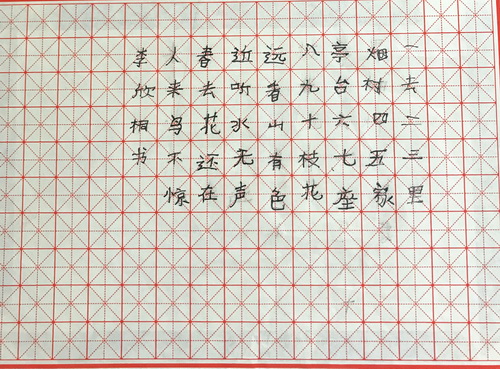 一去二三里
烟村四五家
亭台六七座
八九十枝花
远看山有色
近听水无声
春去花还在
人来鸟不惊
李欣桐书